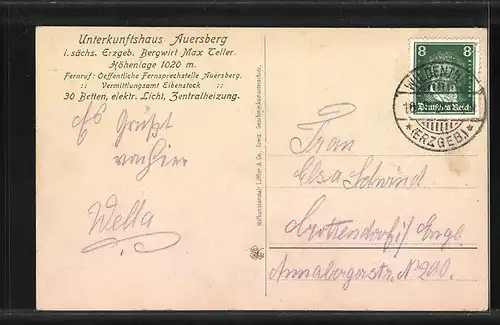 Unterkunftshaus Auersberg
i. sächs. Erzgeb. Bergwirt Max Teller.
Höhenlage 1020 m.
Fernruf: Oeffentliche Fernsprechstelle Auersberg.
:: Vermittlungsamt Eibenstock ::
30 Betten, elektr. Licht, Zentralheizung.
Es Grüßt
von hier
Wella
8 8
Deutsches Reich
*(ERZGEB)*
Frau
Elsa Schwind
Crottendorf i/ Erzgb.
Annabergerstr. No 200.